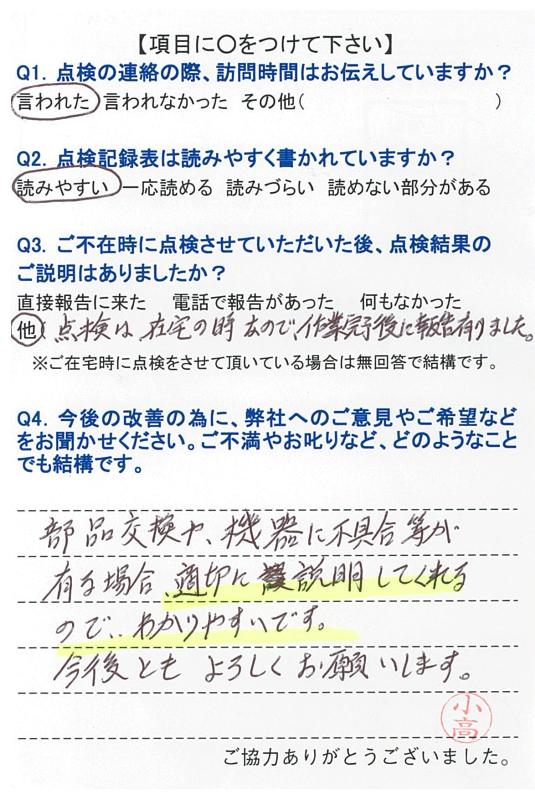 【項目に〇をつけて下さい】
Q1. 点検の連絡の際、訪問時間はお伝えしていますか？
言われた 言われなかった その他（ ）
Q2. 点検記録表は読みやすく書かれていますか？
読みやすい 一応読める 読みづらい 読めない部分がある
Q3. ご不在時に点検させていただいた後、点検結果の
ご説明はありましたか？
直接報告に来た 電話で報告があった 何もなかった
他（点検は、在宅の時なので、作業完了後に報告有りました。
※ご在宅時に点検をさせて頂いている場合は無回答で結構です。
Q4. 今後の改善の為に、弊社へのご意見やご希望など
をお聞かせください。ご不満やお叱りなど、どのようなこと
でも結構です。
部品交換や、機器に不具合等が
有る場合、適切に説明してくれる
ので、わかりやすいです。
今後とも よろしくお願いします。
小
高
ご協力ありがとうございました。